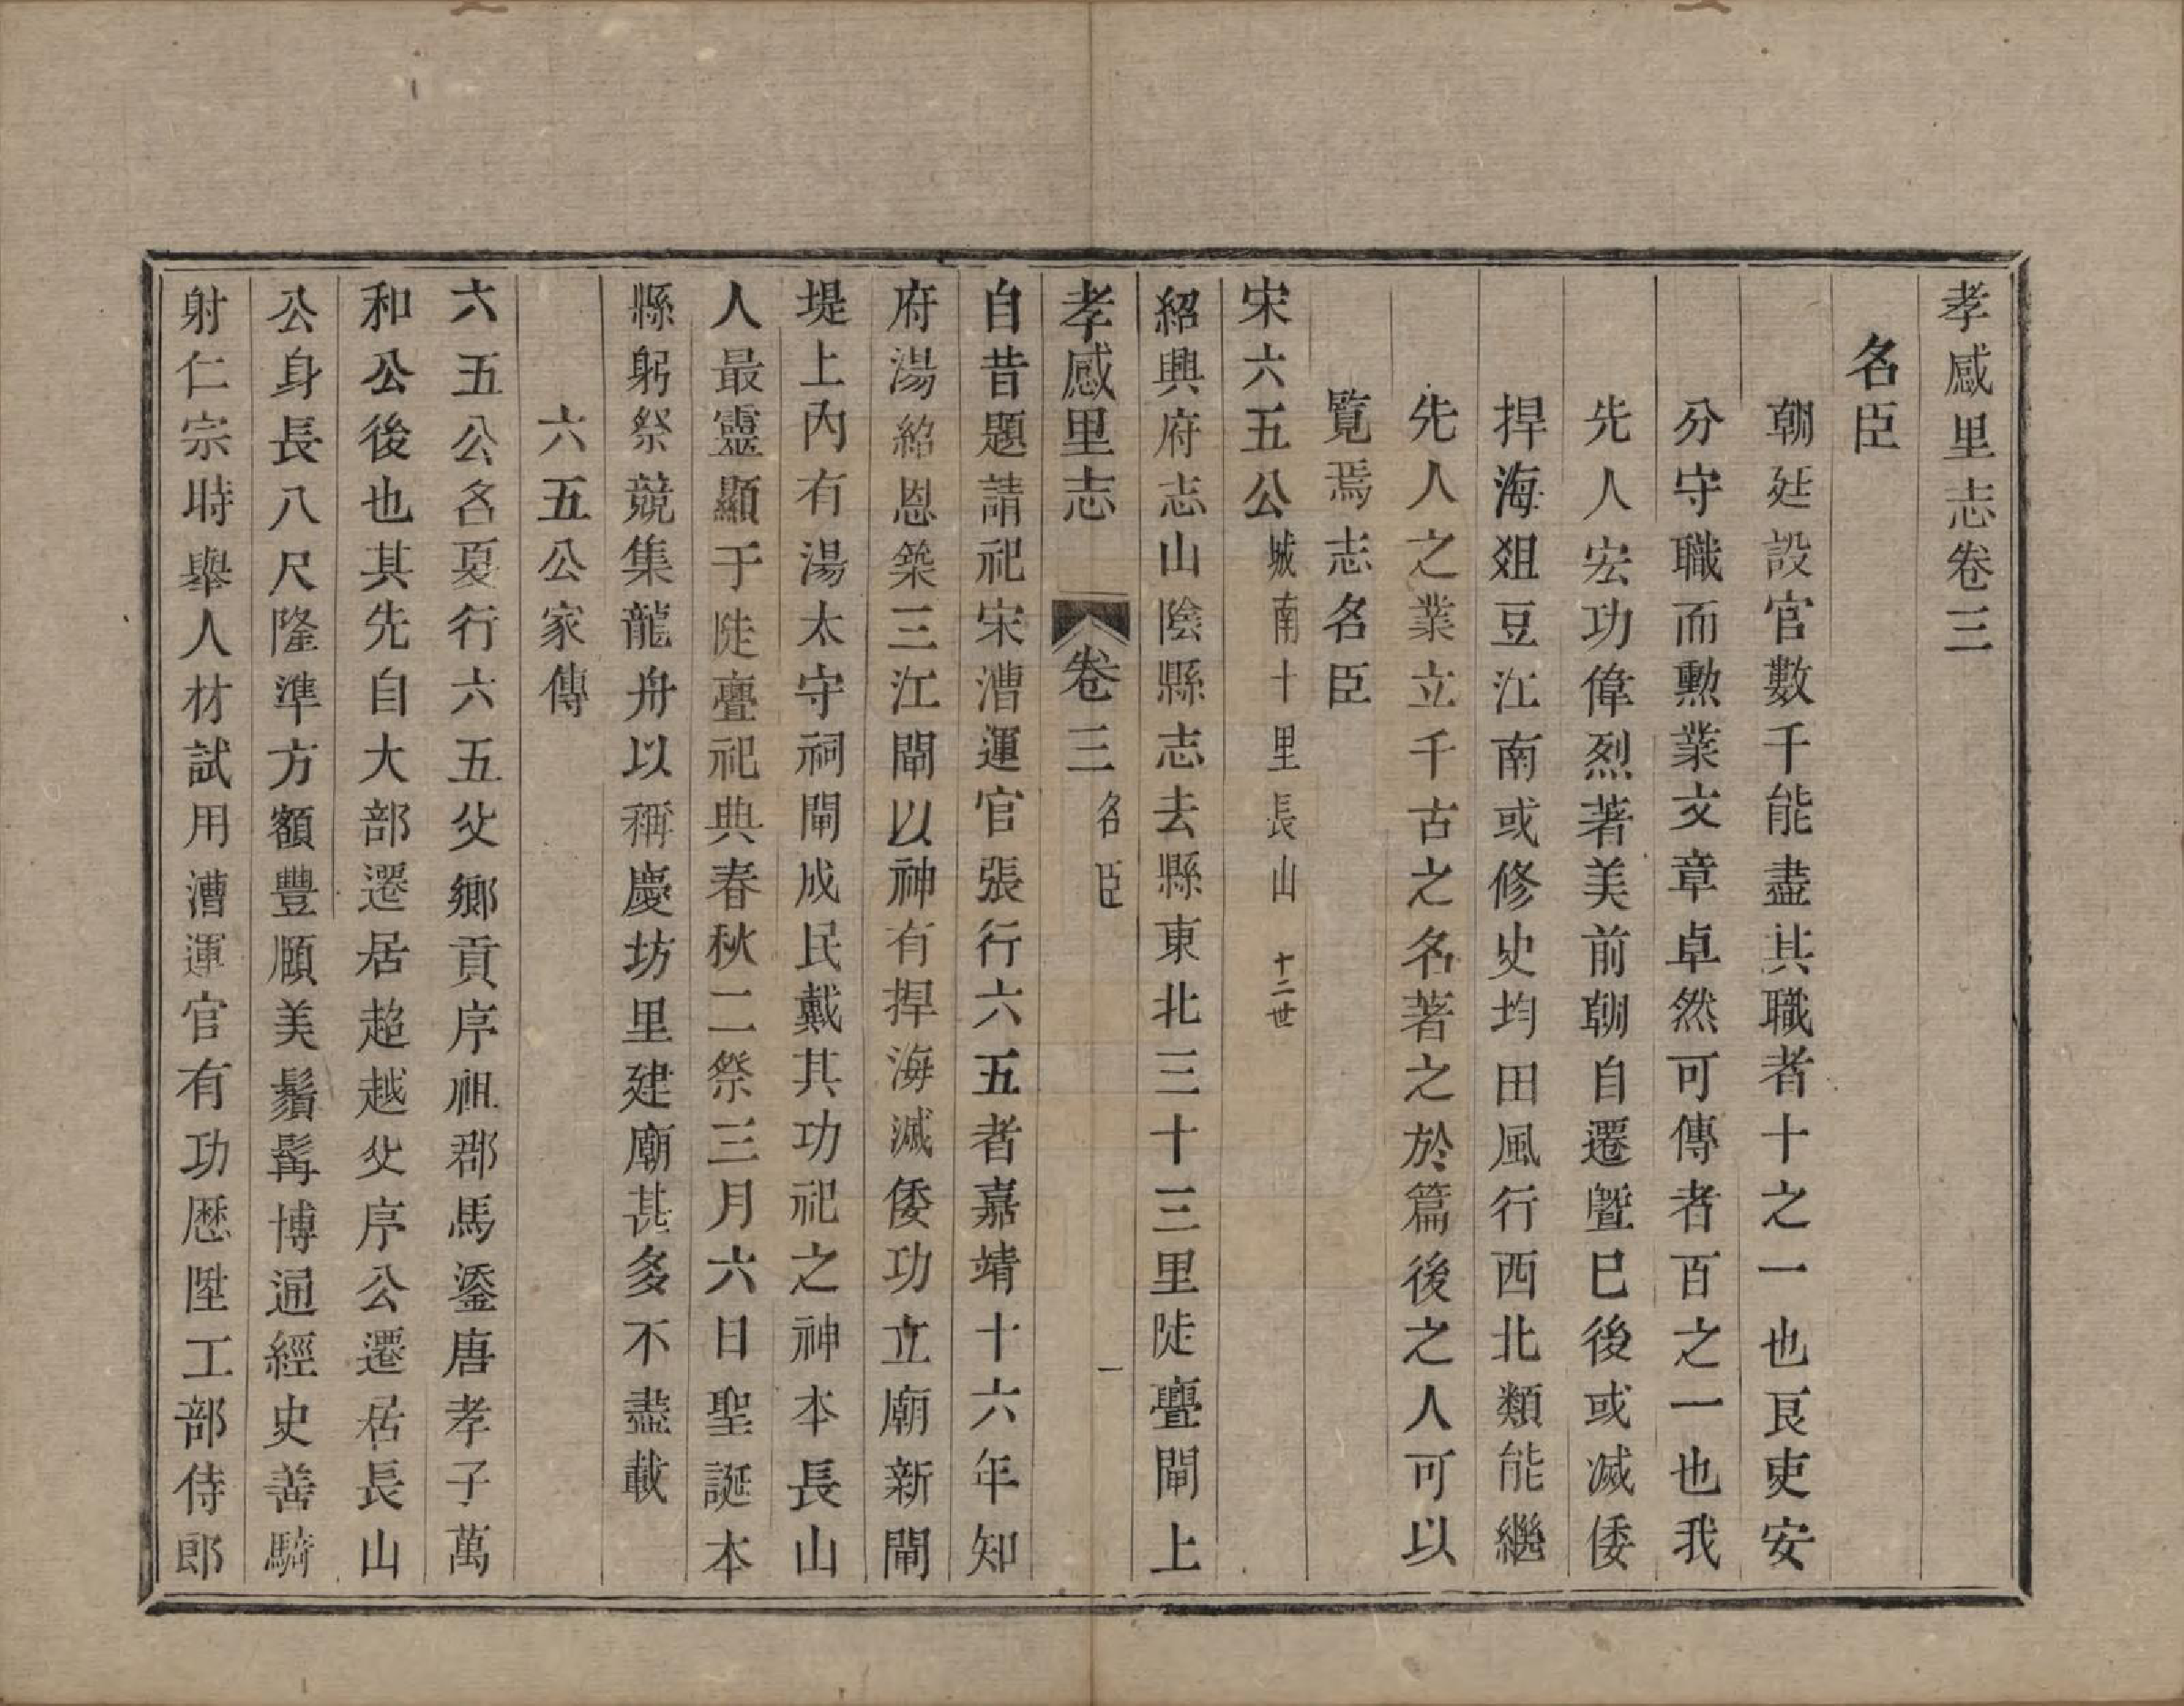 孝感里志卷三
名臣
朝廷設官數千能盡其職者十之一也良吏安
分守職而勲業文章卓然可傳者百之一也我
先人宏功偉烈著美前朝自遷暨巳後或滅倭
捍海爼豆江南或修史均田風行西北類能繼
先人之業立千古之名著之於篇後之人可以
覽焉志名臣
宋六五公城南十里長山 十二世
紹興府志山陰縣志去縣東北三十三里陡亹閘上
孝感里志 卷三 名臣 一
自昔題請祀宋漕運官張行六五者嘉靖十六年知
府湯紹恩築三江閘以神有捍海滅倭功立廟新閘
堤上內有湯太守祠閘成民戴其功祀之神本長山
人最靈顯于陡亹祀典春秋二祭三月六日聖誕本
縣躬祭競集龍舟以稱慶坊里建廟甚多不盡載
六五公家傳
六五公名夏行六五父鄉貢序祖郡馬鎏唐孝子萬
和公後也其先自大部遷居趙越父序公遷居長山
公身長八尺隆準方額豐頤美鬚髯博通經史善騎
射仁宗時舉人材試用漕運官有功歷陞工部侍郎